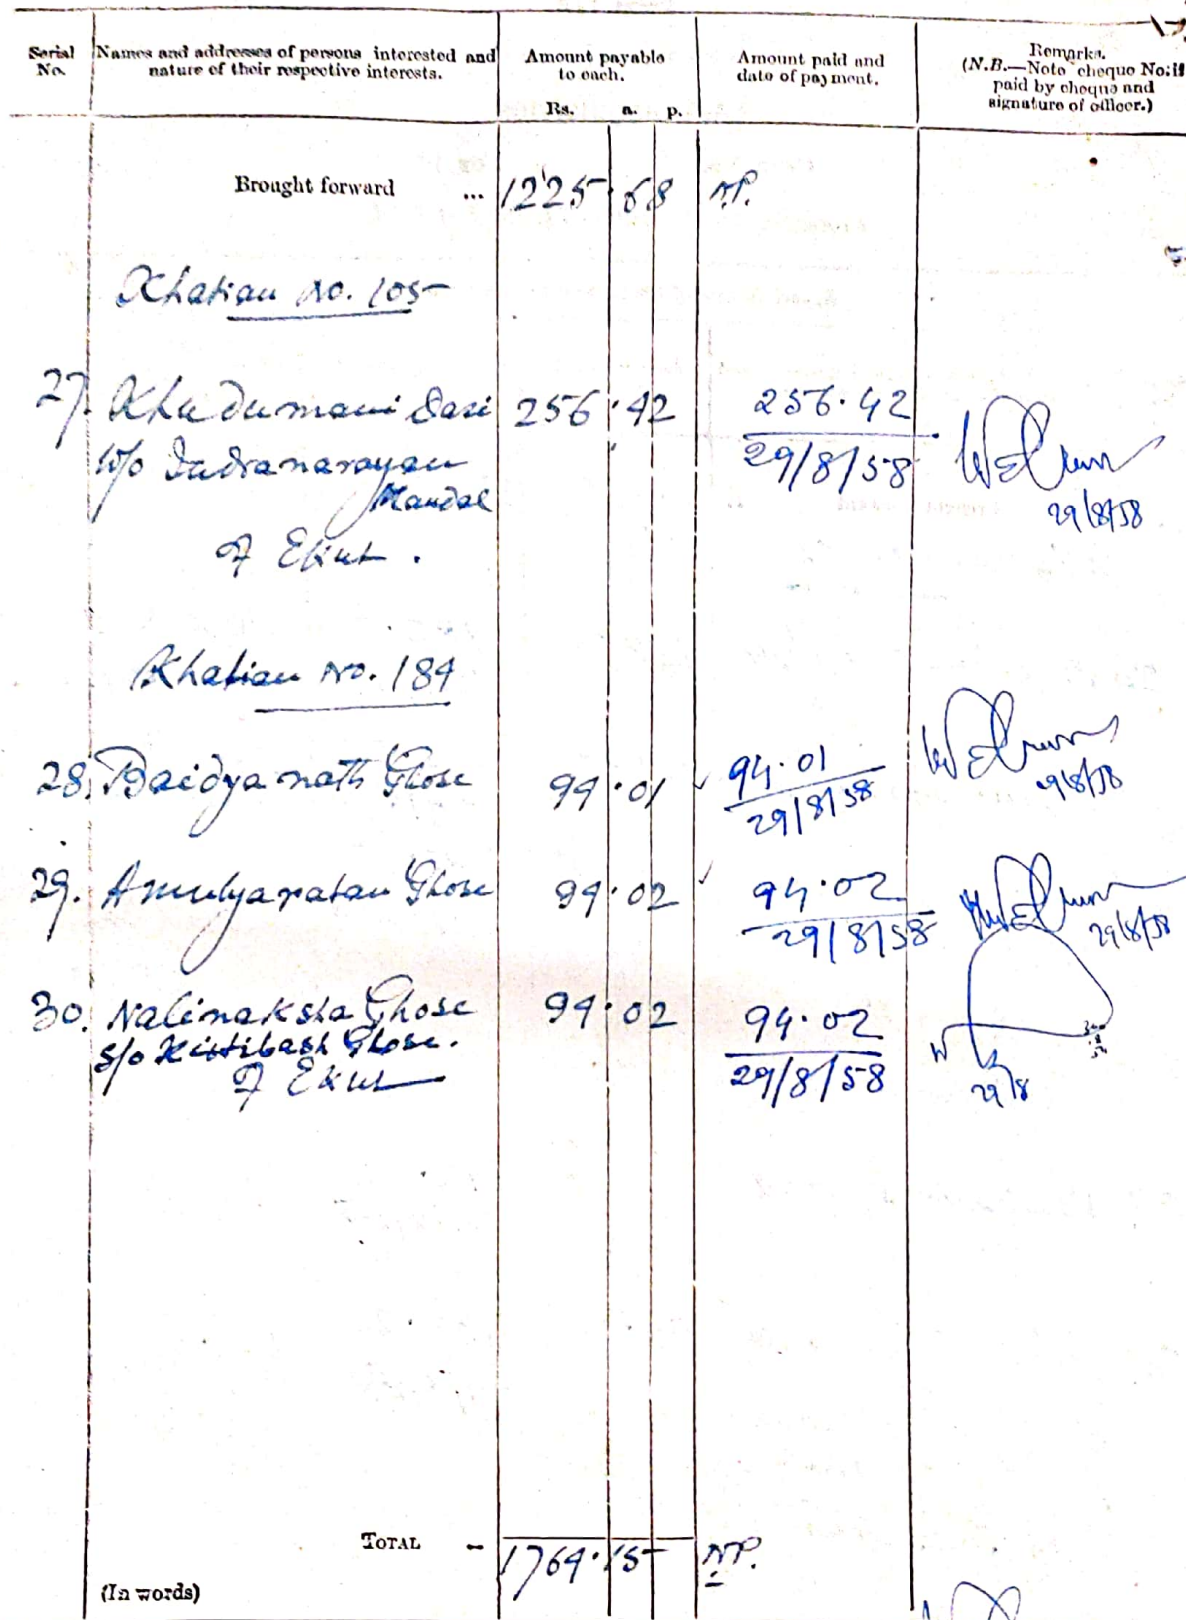 Serial No.
Names and addresses of persons interested and nature of their respective interests.
Amount payable to each.
Rs. a. p.
Amount paid and date of payment.
Remarks.
(N.B.—Note cheque No. if paid by cheque and signature of officer.)
Brought forward ... 1225.68 N.P.
Khatian No. 105
27. Khudumani Dasi 256.42 256.42
W/o Indranarayan 29/8/58
Mandal 29/8/58
of Ekut.
Khatian No. 184
28. Baidyanath Ghose 94.01 94.01
29/8/58 29/8/58
29. Amulyaratan Ghose 94.02 94.02
29/8/58 29/8/58
30. Nalinaksha Ghose 94.02 94.02
S/o Ghose.
of Ekut 29/8/58 29/8
TOTAL 1764.15 N.P.
(In words)